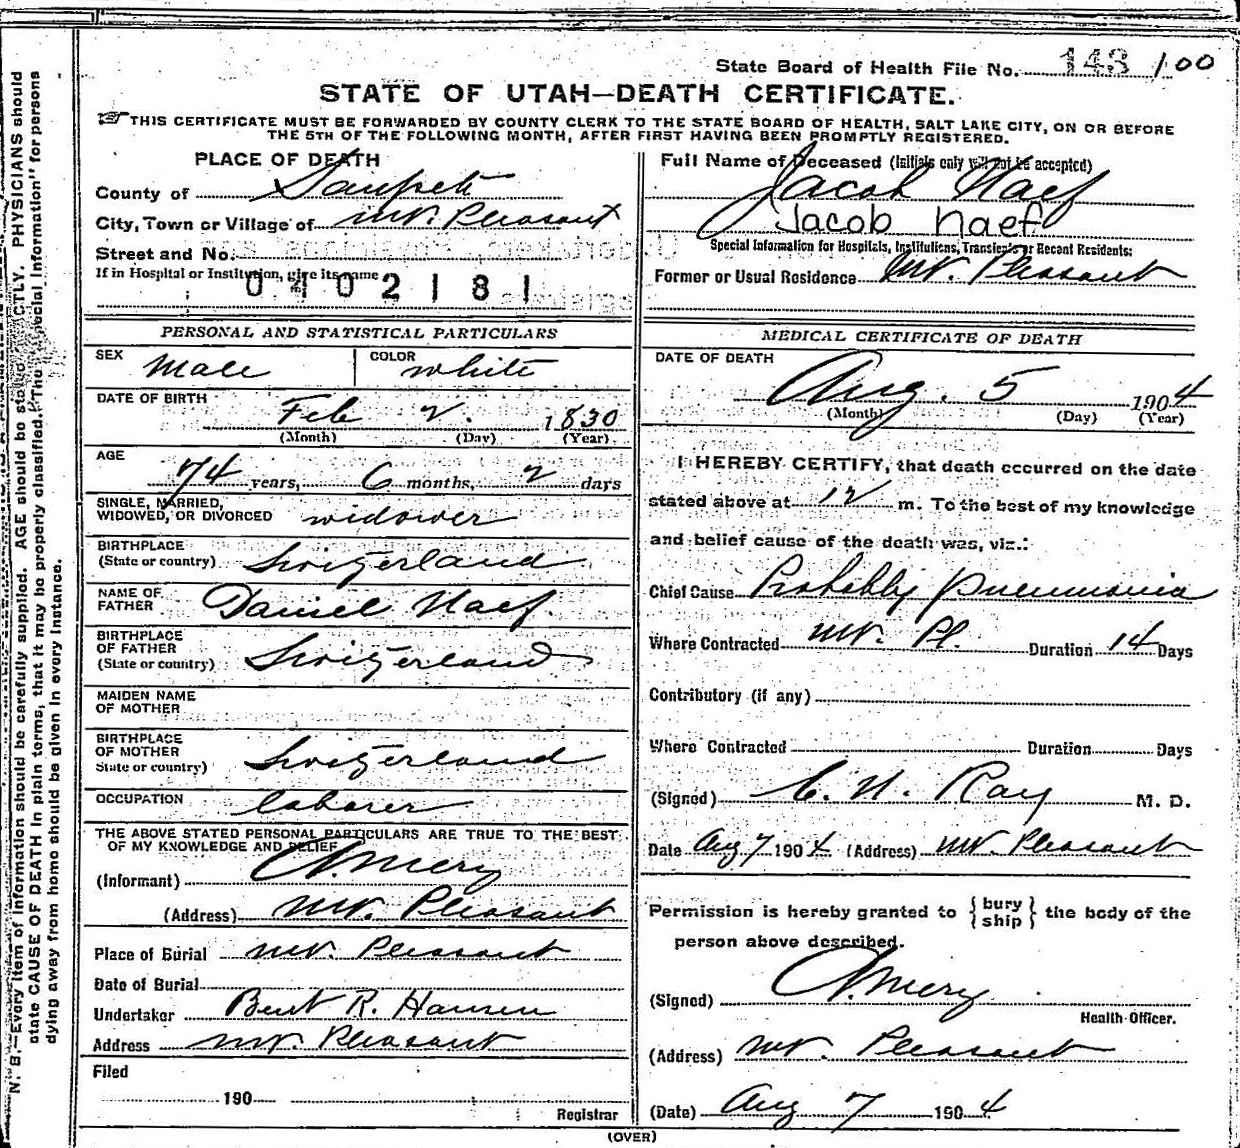 State Board of Health File No. 143 100
STATE OF UTAH—DEATH CERTIFICATE.
THIS CERTIFICATE MUST BE FORWARDED BY COUNTY CLERK TO THE STATE BOARD OF HEALTH, SALT LAKE CITY, ON OR BEFORE
THE 5TH OF THE FOLLOWING MONTH, AFTER FIRST HAVING BEEN PROMPTLY REGISTERED.
PLACE OF DEATH
County of Sanpete
City, Town or Village of Mt. Pleasant
Street and No.
If in Hospital or Institution, give its name
0402181
Full Name of Deceased (Initials only will not be accepted)
Jacob Naef
Jacob Naef
Special Information for Hospitals, Institutions, Transients or Recent Residents:
Former or Usual Residence Mt. Pleasant
PERSONAL AND STATISTICAL PARTICULARS
SEX male COLOR white
DATE OF BIRTH
Feb 2. 1830
(Month) (Day) (Year)
AGE
74 years, 6 months, 2 days
SINGLE, MARRIED,
WIDOWED, OR DIVORCED widower
BIRTHPLACE
(State or country) Switzerland
NAME OF
FATHER Daniel Naef.
BIRTHPLACE
OF FATHER
(State or country) Switzerland
MAIDEN NAME
OF MOTHER
BIRTHPLACE
OF MOTHER
State or country) Switzerland
OCCUPATION laborer
THE ABOVE STATED PERSONAL PARTICULARS ARE TRUE TO THE BEST
OF MY KNOWLEDGE AND BELIEF
(Informant) A. Merz
(Address) Mt. Pleasant
Place of Burial Mt. Pleasant
Date of Burial
Undertaker Bent R. Hansen
Address Mt. Pleasant
Filed
190
Registrar
MEDICAL CERTIFICATE OF DEATH
DATE OF DEATH
Aug. 5 1904
(Month) (Day) (Year)
I HEREBY CERTIFY, that death occurred on the date
stated above at 12 m. To the best of my knowledge
and belief cause of the death was, viz.:
Chief Cause Probably pneumonia
Where Contracted Mt. Pl. Duration 14 Days
Contributory (if any)
Where Contracted Duration Days
(Signed) C. N. Ray M. D.
Date Aug 7 1904. (Address) Mt. Pleasant
Permission is hereby granted to { bury ship } the body of the
person above described.
(Signed) A. Merz
Health Officer.
(Address) Mt. Pleasant
(Date) Aug 7 1904
(OVER)
N. B.—Every item of information should be carefully supplied. AGE should be CTLY. PHYSICIANS should
state CAUSE OF DEATH in plain terms, that it may be properly classified. The "Special Information" for persons
dying away from home should be given in every instance.